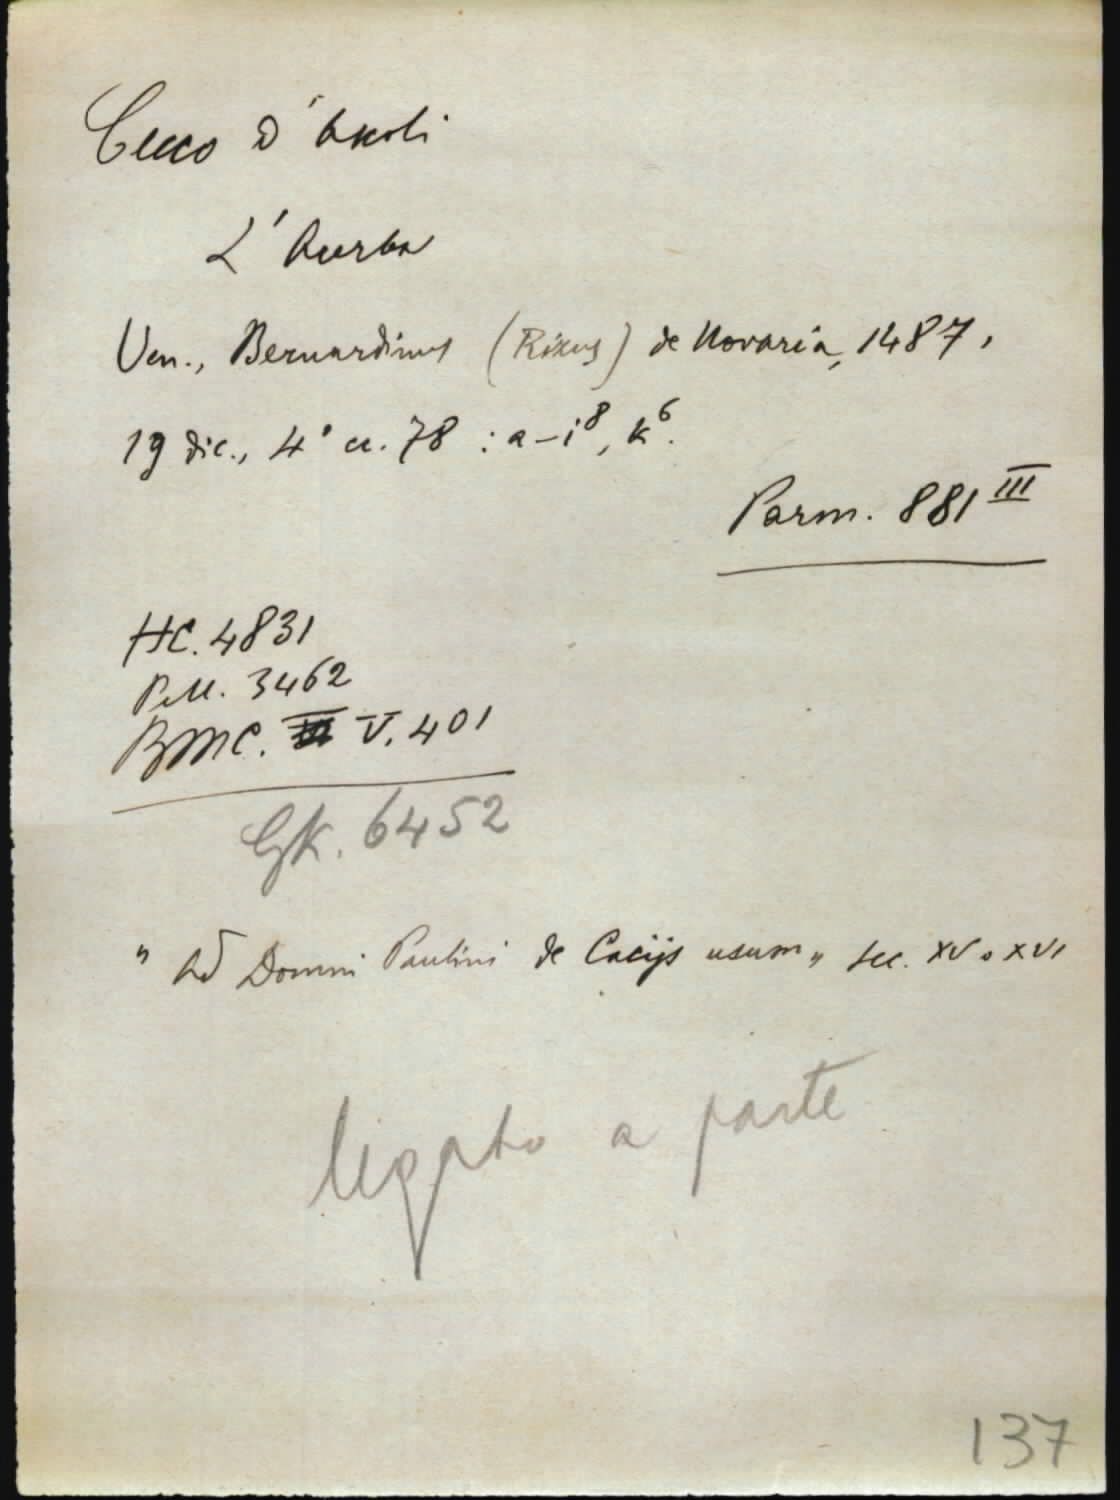 Cecco d'Ascoli
L'Acerba
Ven., Bernardinus (Rizus) de Novaria, 1487,
19 dic., 4° cc. 78 : a-i⁸, k⁶.
Parm. 881 III
HC. 4831
Pell. 3462
BMC. V. 401
GK. 6452
" Ad Domni Paulini de Cacijs usum „ sec. XV o XVI
legato a parte
137